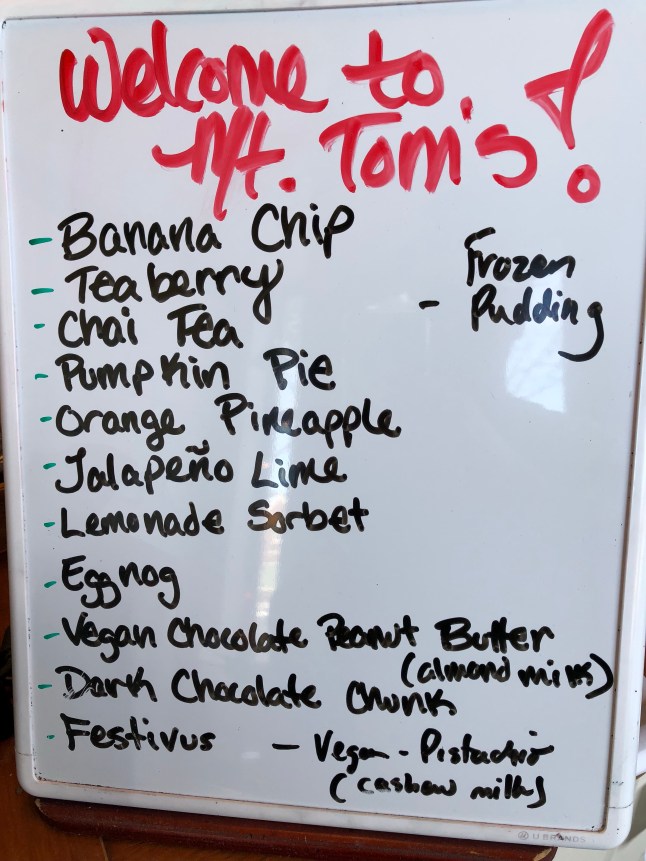 Welcome to
Mt. Tom's!
- Banana Chip
- Teaberry
- Frozen
Pudding
- Chai Tea
- Pumpkin Pie
- Orange Pineapple
- Jalapeño Lime
- Lemonade Sorbet
- Eggnog
- Vegan Chocolate Peanut Butter
(almond milk)
- Dark Chocolate Chunk
- Festivus
- Vegan - Pistachio
(cashew milk)
U BRANDS